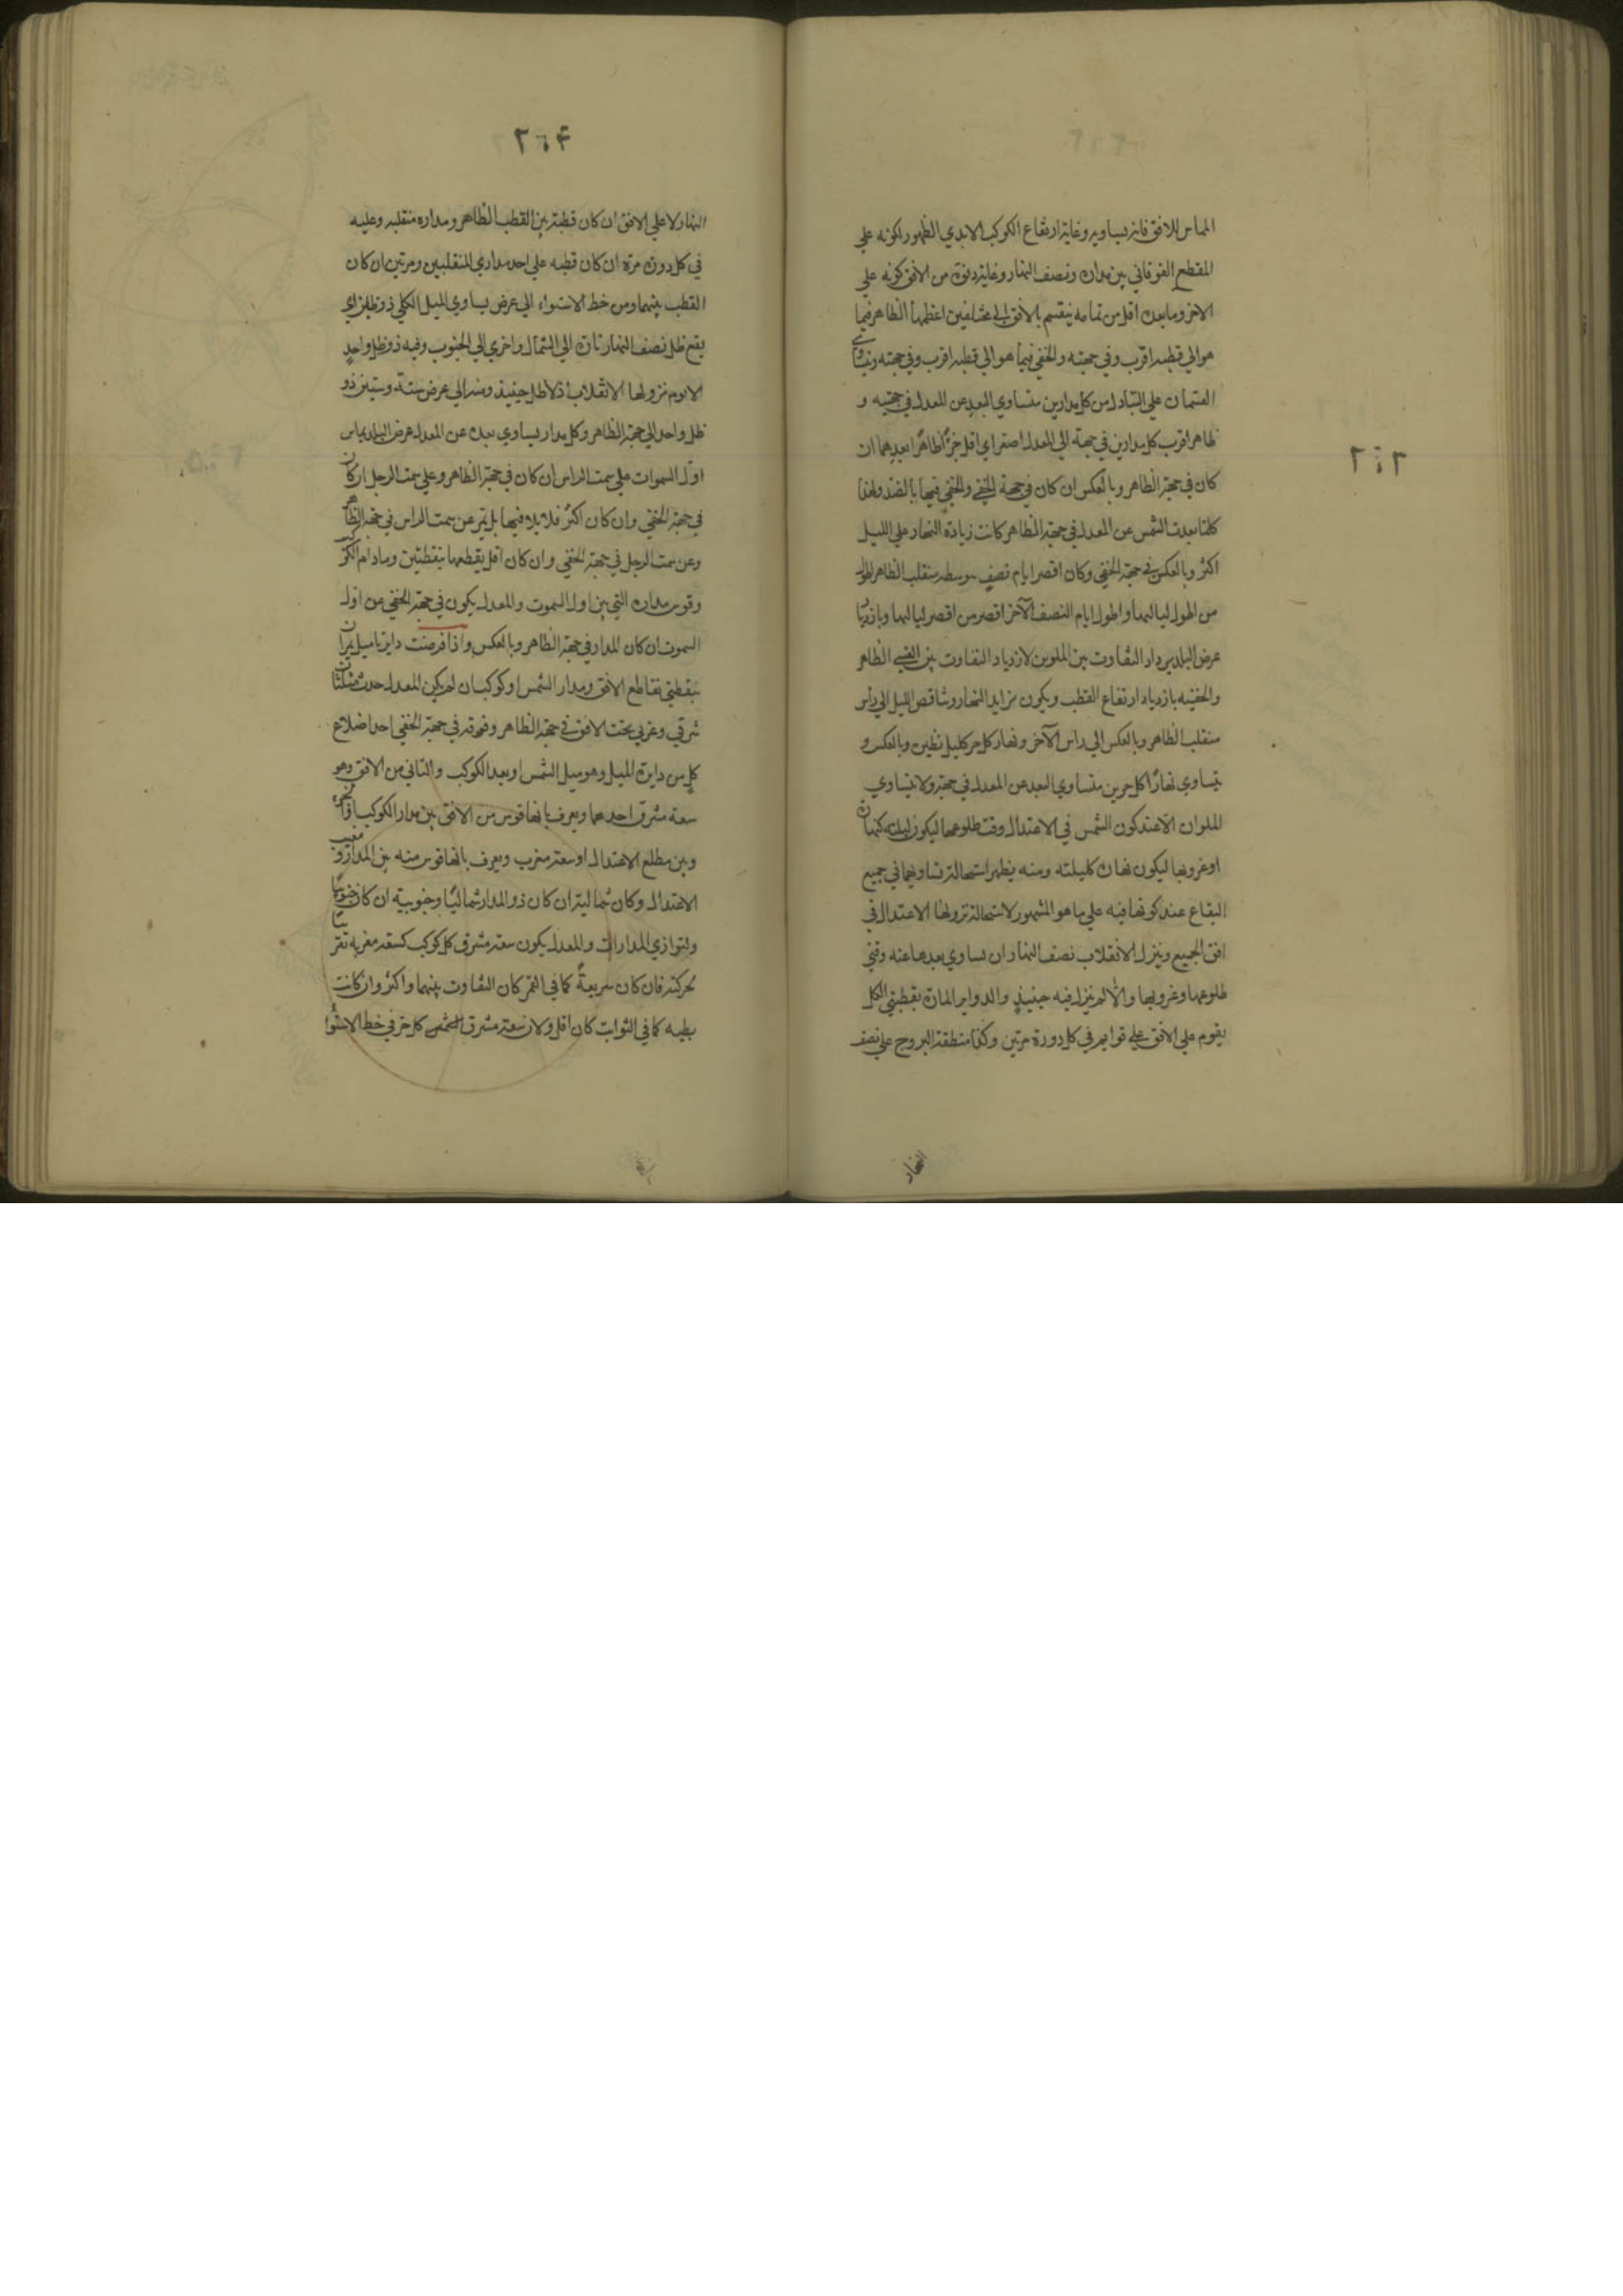 المماس للافق فانه يساويه وغاية ارتفاع الكوكب الابدي الظهور لكونه علي
المقطع الفوقاني بين مداره ونصف النهار وغاية دنوه من الافق كونه علي
الاخر وما بعده اقل من تمامه ينقسم بالافق الي مختلفين اعظمها الظاهر فيما
هو الي قطبه اقرب وفي جهته والخفي فيما هو الي قطبه اقرب وفي جهته ويتساوي
القسمان علي التبادل من كل مدارين متساوي البعد عن المعدل في جهتيه و
ظاهر اقرب كل مدارين في جهة الي المعدل اصغر اي اقل جزءا ظاهرا ابعدهما ان
كان في جهة الظاهر وبالعكس ان كان في جهة الخفي والخفي فيها بالضد ولهذا
كلما بعدت الشمس عن المعدل في جهة الظاهر كانت زيادة النهار علي الليل
اكثر وبالعكس في جهة الخفي وكان اقصر ايام نصف يوسطه منقلب الظاهر اطول
من اطول لياليها واطول ايام النصف الآخر اقصر من اقصر لياليها وبازدياد
عرض البلد يزداد التفاوت بين الملوين لازدياد التفاوت بين القسي الظاهر
والخفيه بازدياد ارتفاع القطب ويكون تزايد النهار وتناقص الليل الي راس
منقلب الظاهر وبالعكس الي راس الآخر ونهار كل جزء كليل نظيره وبالعكس و
يتساوي نهارا كل جزءين متساوي البعد عن المعدل في جهة ولا يتساوي
الملوان الا عند كون الشمس في الاعتدال وقت طلوعها ليكون ليلته كنهاره
او غروبها ليكون نهاره كليلته ومنه يظهر استحالة تساويهما في جميع
البقاع عند كونها فيه علي ما هو المشهور لاستحالة نزولها الاعتدال في
افق الجميع وينزل الانقلاب نصف النهار ان يساوي بعدها عنه وقتي
طلوعها وغروبها والا لم ينزل فيه حينئذ والدواير المارة بقطبتي الكل
يقوم علي الافق علي قوايم في كل دورة مرتين وكذا منطقة البروج علي نصف
النهار
٢٦٢
٢٦٤
النهار لا علي الافق ان كان قطبته بين القطب الظاهر ومداره منقلبه وعليه
في كل دورة مرة ان كان قطبه علي احد مداري المنقلبين ومرتين ان كان
القطب بينهما ومن خط الاستواء الي عرض يساوي الميل الكلي ذو ظلين اي
يقع ظل نصف النهار تارة الي الشمال واخري الي الجنوب وفيه ذو ظل واحد
الا يوم نزولها الانقلاب اذ لا ظل حينئذ ومنه الي عرض ستة وستين ذو
ظل واحد الي جهة الظاهر وكل مدار يساوي بعده عن المعدل عرض البلد يماس
اول السموات علي سمت الراس ان كان في جهة الظاهر وعلي سمت الرجل ان كان
في جهة الخفي وان كان اكثر فلا يلاقيها بل يمر عن سمت الراس في جهة الظاهر
وعن سمت الرجل في جهة الخفي وان كان اقل يقطعها بنقطتين وما دام الكوكب
وقوس مداره التي بين اول السموت والمعدل يكون في جهة الخفي عن اول
السموت ان كان المدار في جهة الظاهر وبالعكس واذا فرضت دايرتا ميل يمران
بنقطتي تقاطع الافق ومدار الشمس او كوكب ان لم يكن المعدل حدث مثلثان
شرقي وغربي تحت الافق في جهة الظاهر وفوقه في جهة الخفي احد اضلاع
كل من دايرة الميل وهو ميل الشمس او بعد الكوكب والثاني من الافق وهو
سعة مشرق احدهما ويعرف بانها قوس من الافق بين مدار الكوكب او الجزء
وبين مطلع الاعتدال او سعة مغرب ويعرف بانها قوس منه بين المدار ومغيب
الاعتدال وكان شمالية ان كان ذو المدار شماليا وجنوبية ان كان جنوبيا
ولتوازي المدارات والمعدل يكون سعة مشرق كل كوكب كسعة مغربه تقريبا
لحركته فان كان سريعة كما في القمر كان التفاوت بينهما اكثر وان كانت
بطيه كما في الثوابت كان اقل ولان سعة مشرق الشمس كل جزء في خط الاستواء